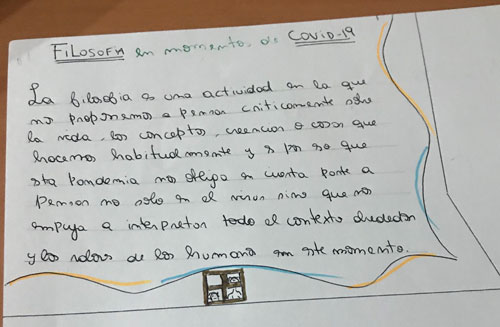 FILOSOFIA en momento de COVID-19
La filosofia es una actividad en la que
nos proponemos a pensar criticamente sobre
la vida, los conceptos, creencias o cosas que
hacemos habitualmente y es por eso que
esta pandemia nos obliga en cierta parte a
pensar no solo en el virus sino que nos
empuja a interpretar todo el contexto alrededor
y los valores de los humano en este momento.